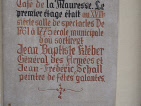 Café de la Mauresse. Le
premier étage était au XVIIIe
siècle salle de spectacles. De
1761 à 1775 école municipale
d'où sortirent
Jean Baptiste Kléber
Général des Armées et
Jean Frédéric Schall
peintre de fêtes galantes